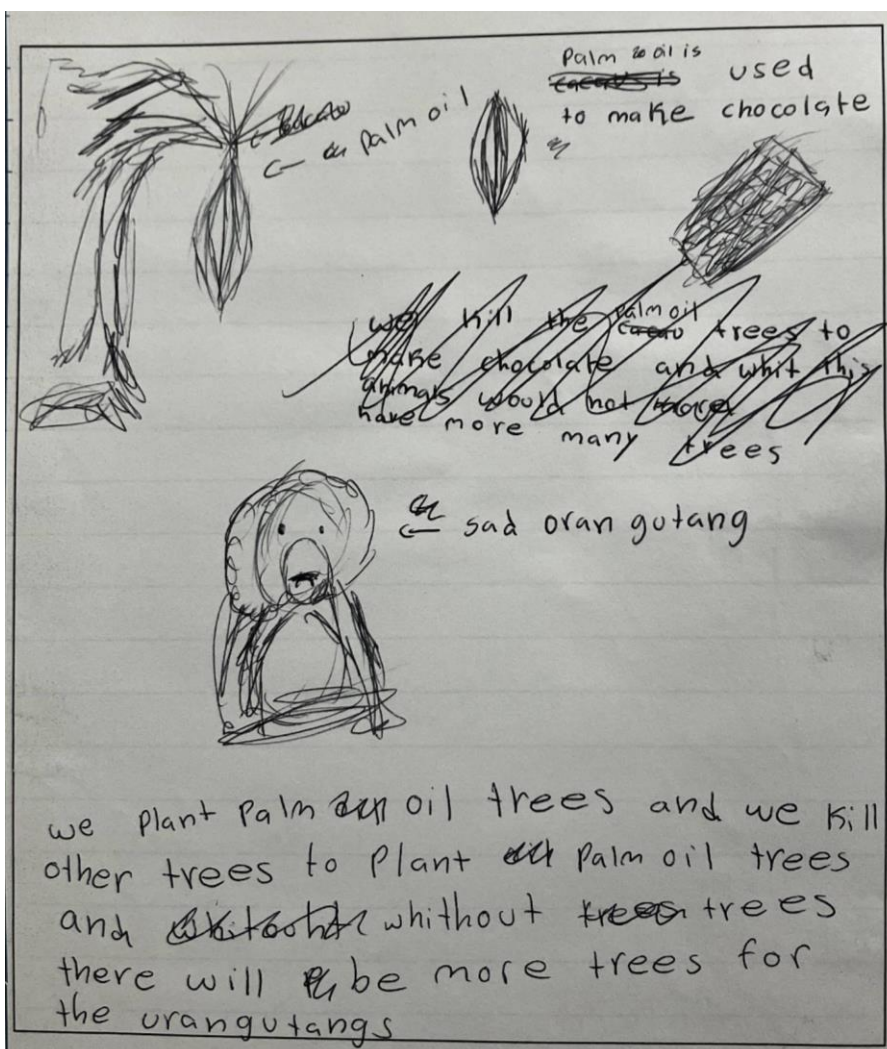 Palm oil is
used
to make chocolate
palm oil
we kill the palm oil trees to
make chocolate and whit this
animals would not
have more many trees
sad oran gutang
we plant palm oil trees and we kill
other trees to plant palm oil trees
and whithout trees
there will be more trees for
the urangutangs